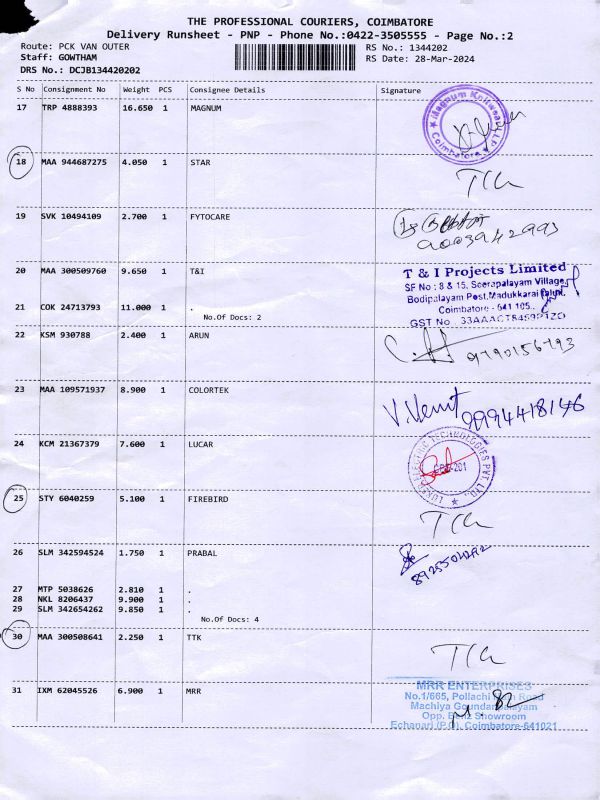 THE PROFESSIONAL COURIERS, COIMBATORE
Delivery Runsheet - PNP - Phone No.:0422-3505555 - Page No.:2
Route: PCK VAN OUTER
RS No.: 1344202
Staff: GOWTHAM
RS Date: 28-Mar-2024
DRS No.: DCJB134420202
S No Consignment No Weight PCS Consignee Details Signature
17 TRP 4888393 16.650 1 MAGNUM
Coimbatore
18 MAA 944687275 4.050 1 STAR
19 SVK 10494109 2.700 1 FYTOCARE
9003942993
20 MAA 300509760 9.650 1 T&I
T & I Projects Limited
SF No : 8 & 15, Seerapalayam Village,
Bodipalayam Post, Madukkarai Taluk,
Coimbatore - 641 105.
21 COK 24713793 11.000 1 .
No.Of Docs: 2
22 KSM 930788 2.400 1 ARUN
9790156793
23 MAA 109571937 8.900 1 COLORTEK
9994418146
24 KCM 21367379 7.600 1 LUCAR
ELECTRIC TECHNOLOGIES PVT LTD.
25 STY 6040259 5.100 1 FIREBIRD
26 SLM 342594524 1.750 1 PRABAL
27 MTP 5038626 2.810 1 .
28 NKL 8206437 9.900 1 .
29 SLM 342654262 9.850 1 .
No.Of Docs: 4
30 MAA 300508641 2.250 1 TTK
31 IXM 62045526 6.900 1 MRR
MRR ENTERPRISES
No.1/665, Pollachi Main Road
Machiya Goundanpalayam
Opp. Benz Showroom
Echanari (P.O), Coimbatore-641021